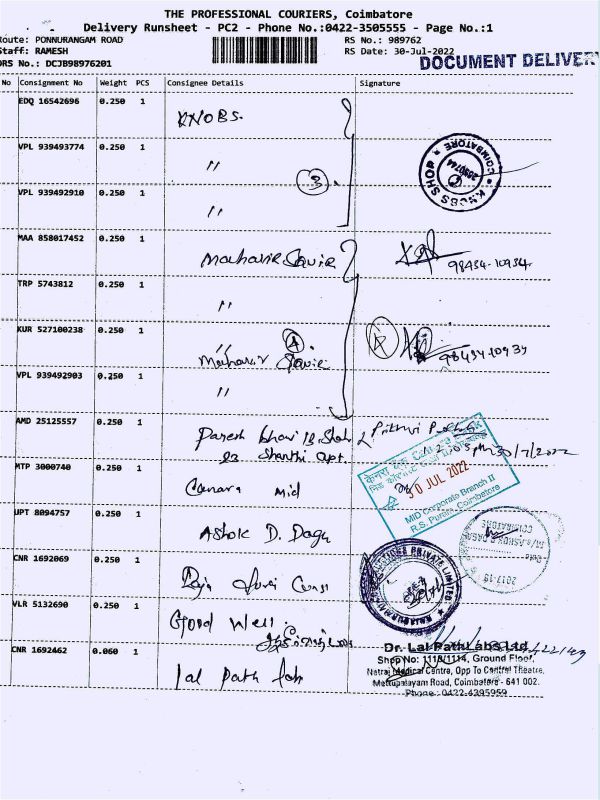 THE PROFESSIONAL COURIERS, Coimbatore
Delivery Runsheet - PC2 - Phone No.:0422-3505555 - Page No.:1
Route: PONNURANGAM ROAD
RS No.: 989762
Staff: RAMESH
RS Date: 30-Jul-2022
DRS No.: DCJB98976201
DOCUMENT DELIVERY
No Consignment No Weight PCS Consignee Details Signature
EDQ 16542696 0.250 1 KNOBS.
VPL 939493774 0.250 1 "
3
COIMBATORE
KNOBS SHOP
VPL 939492910 0.250 1 "
MAA 858017452 0.250 1 Mahavir
98434-10934
TRP 5743812 0.250 1 "
KUR 527100238 0.250 1 "
4
Mahavir
VPL 939492903 0.250 1 "
AMD 25125557 0.250 1 Paresh bhai B. Shah
Shanthi Apt.
30/7/2022
MTP 3000740 0.250 1 Canara Mid
30 JUL 2022
MID Corporate Branch II
R.S. Puram, Coimbatore
UPT 8094757 0.250 1 Ashok D. Daga
COIMBATORE
2017-18
CNR 1692069 0.250 1
PRIVATE LIMITED
VLR 5132690 0.250 1 Good Well
CNR 1692462 0.060 1 Lal Path Lab
Dr. Lal PathLabs Ltd
Shop No: 1113/1114, Ground Floor,
Natraj Medical Centre, Opp To Central Theatre,
Mettupalayam Road, Coimbatore - 641 002.
Phone: 0422-4395959